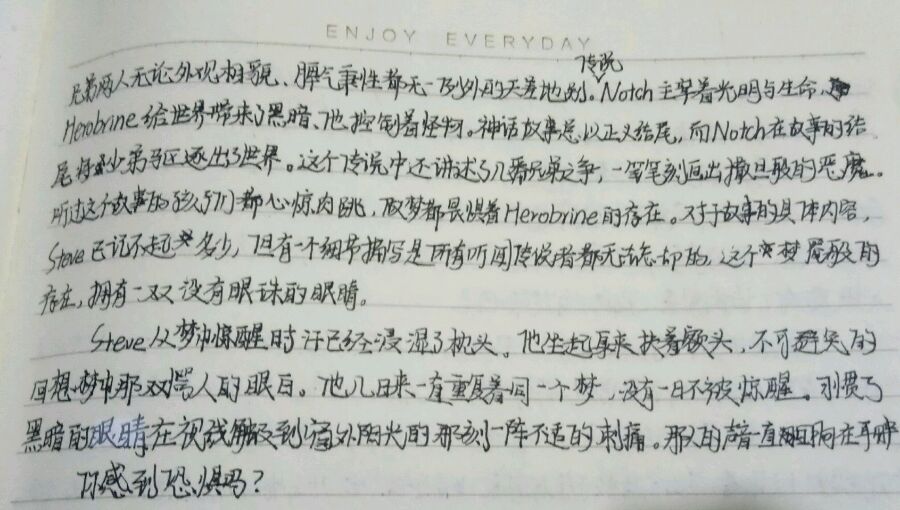 ENJOY EVERYDAY
传说
兄弟两人无论外观相貌、脾气秉性都无一例外的天差地别。Notch主宰着光明与生命、
Herobrine给世界带来了黑暗、他控制着怪物。神话故事总以正义结尾，而Notch在故事的结
尾将弟弟驱逐出了世界。这个传说中还讲述了几番兄弟之争，一笔笔刻画出撒旦般的恶魔。
听过这个故事的孩子们都心惊肉跳，做梦都畏惧着Herobrine的存在。对于故事的具体内容，
Steve已记不起多少，但有一个细节描写是所有听闻传说者都无法忘却的，这个梦魇般的
存在，拥有一双没有眼珠的眼睛。
Steve从梦中惊醒时汗已经浸湿了枕头。他坐起来扶着额头，不可避免的
回想梦中那双骇人的眼白。他几日来一直重复着同一个梦，没有一日不被惊醒。习惯了
黑暗的眼睛在视线触及到窗外阳光的那刻一阵不适的刺痛。那人的声音一直回响在耳畔
你感到恐惧吗？